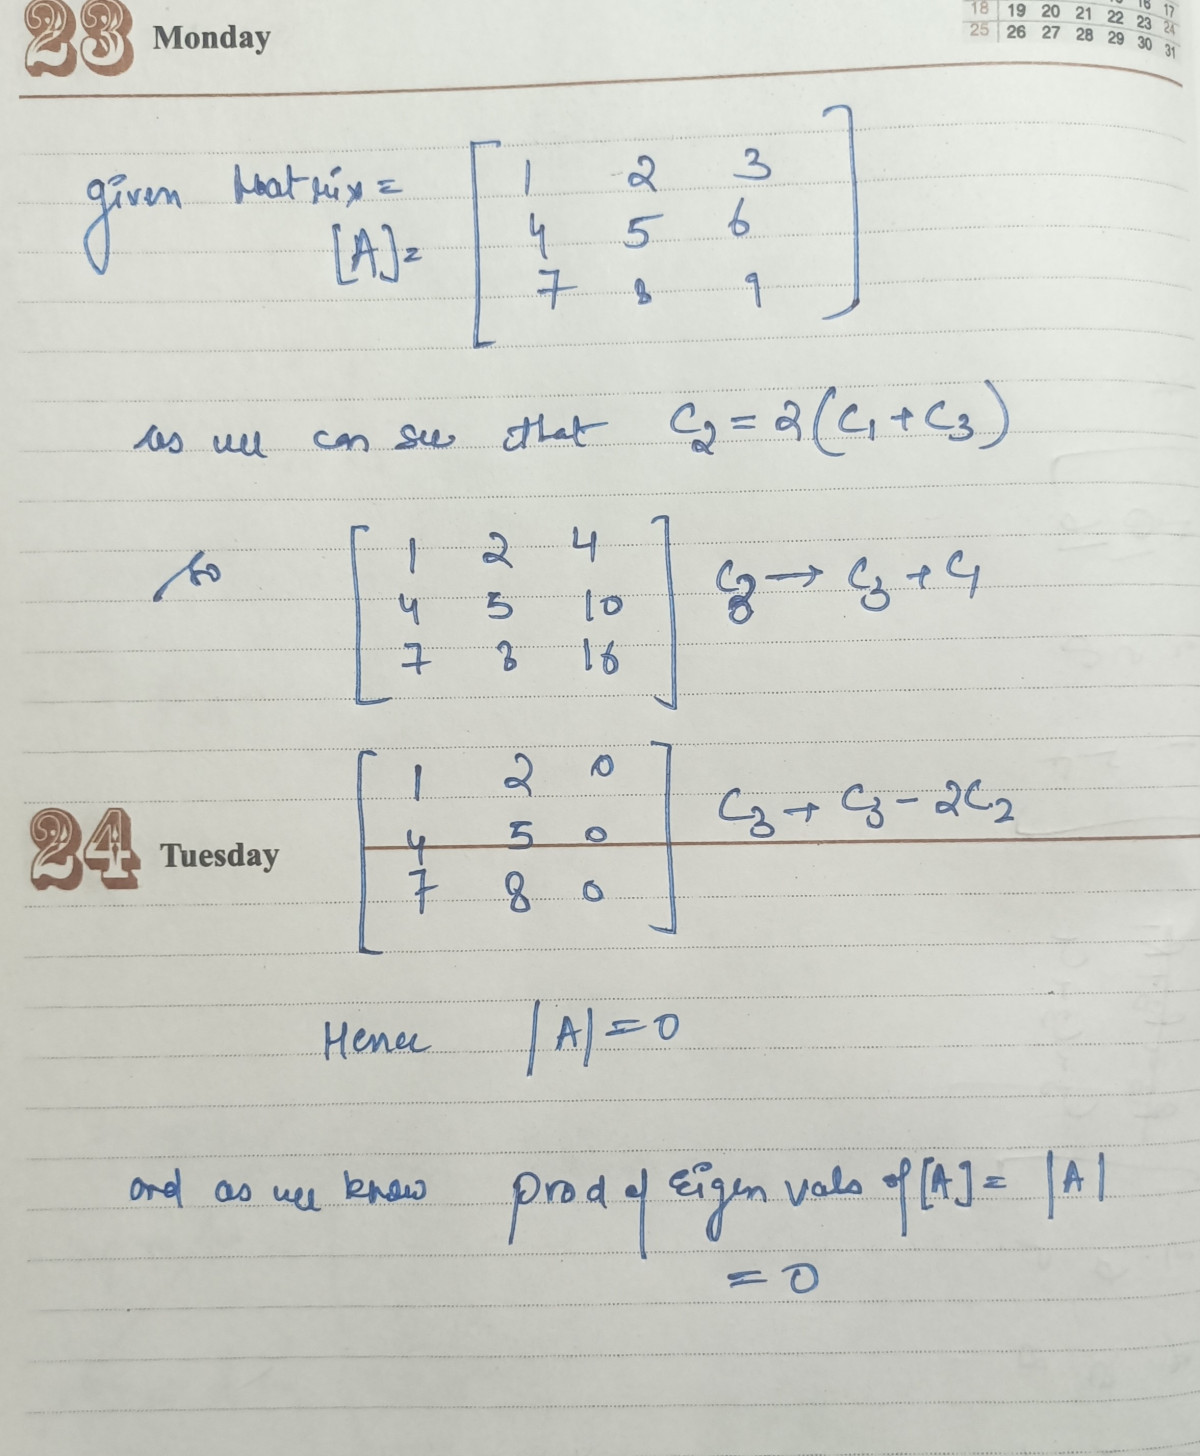 23 Monday
16 17
18 19 20 21 22 23 24
25 26 27 28 29 30 31
given Matrix =
[A] =
1 2 3
4 5 6
7 8 9
as we can see that C₂ = 2(C₁ + C₃)
so
1 2 4
4 5 10
7 8 16
C₃ → C₃ + C₁
1 2 0
4 5 0
7 8 0
C₃ → C₃ - 2C₂
24 Tuesday
Hence |A| = 0
and as we know prod of Eigen vals of [A] = |A|
= 0